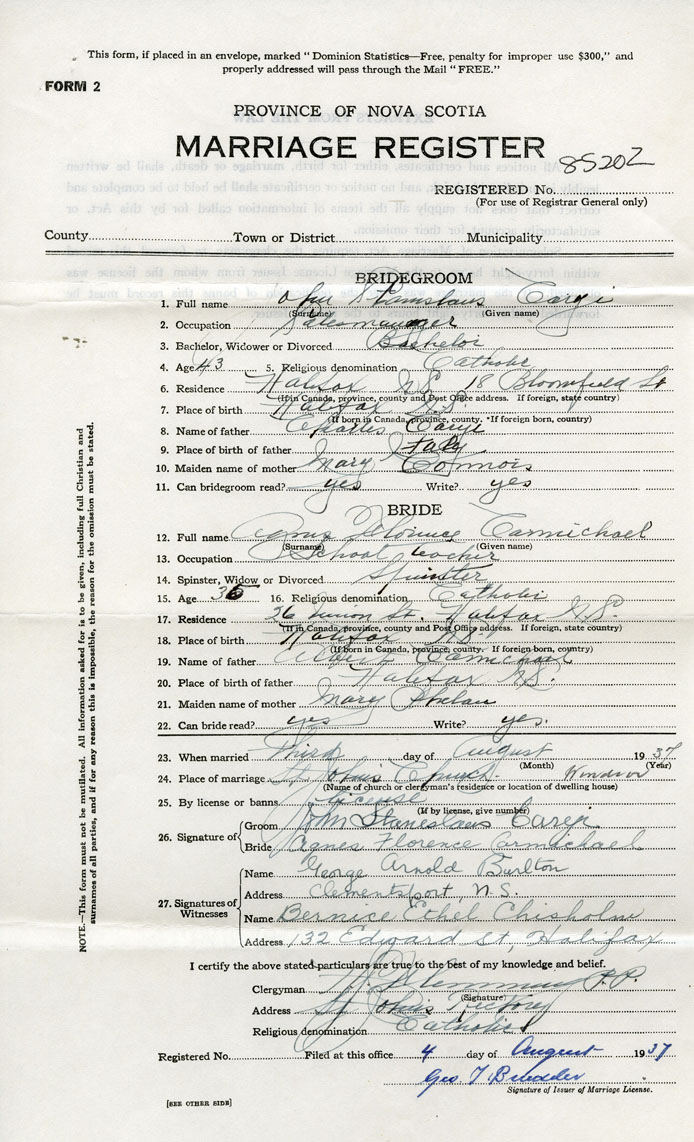 This form, if placed in an envelope, marked " Dominion Statistics—Free, penalty for improper use $300," and
properly addressed will pass through the Mail "FREE."
FORM 2
PROVINCE OF NOVA SCOTIA
MARRIAGE REGISTER
85202
REGISTERED No.
(For use of Registrar General only)
County Town or District Municipality
BRIDEGROOM
1. Full name John Stanislaus
(Surname) (Given name)
2. Occupation Salesmanager
3. Bachelor, Widower or Divorced Bachelor
4. Age 43 5. Religious denomination Catholic
6. Residence Halifax N.S. 18 Bloomfield St
(If in Canada, province, county and Post Office address. If foreign, state country)
7. Place of birth Halifax N.S.
(If born in Canada, province, county. If foreign born, country)
8. Name of father Charles
9. Place of birth of father
10. Maiden name of mother Mary Connors
11. Can bridegroom read? yes Write? yes
BRIDE
12. Full name Agnes Florence Carmichael
(Surname) (Given name)
13. Occupation School teacher
14. Spinster, Widow or Divorced Spinster
15. Age 36 16. Religious denomination Catholic
17. Residence 26 St. Halifax N.S.
(If in Canada, province, county and Post Office address. If foreign, state country)
18. Place of birth Halifax N.S.
(If born in Canada, province, county. If foreign born, country)
19. Name of father Albert Carmichael
20. Place of birth of father Halifax N.S.
21. Maiden name of mother Mary Phelan
22. Can bride read? yes Write? yes.
23. When married Third day of August 1937
(Month) (Year)
24. Place of marriage St John's Church. Windsor
(Name of church or clergyman's residence or location of dwelling house)
25. By license or banns License
(If by license, give number)
26. Signature of
Groom John Stanislaus
Bride Agnes Florence Carmichael
27. Signatures of Witnesses
Name George Arnold Burlton
Address Clementsport, N.S.
Name Bernice Ethel Chisholm
Address 132 Edward St, Halifax
I certify the above stated particulars are true to the best of my knowledge and belief.
Clergyman P.P.
(Signature)
Address St John's Rectory
Religious denomination Catholic
Registered No. Filed at this office 4 day of August 1937
Geo. T
Signature of Issuer of Marriage License.
[SEE OTHER SIDE]
NOTE.—This form must not be mutilated. All information asked for is to be given, including full Christian and
surnames of all parties, and if for any reason this is impossible, the reason for the omission must be stated.